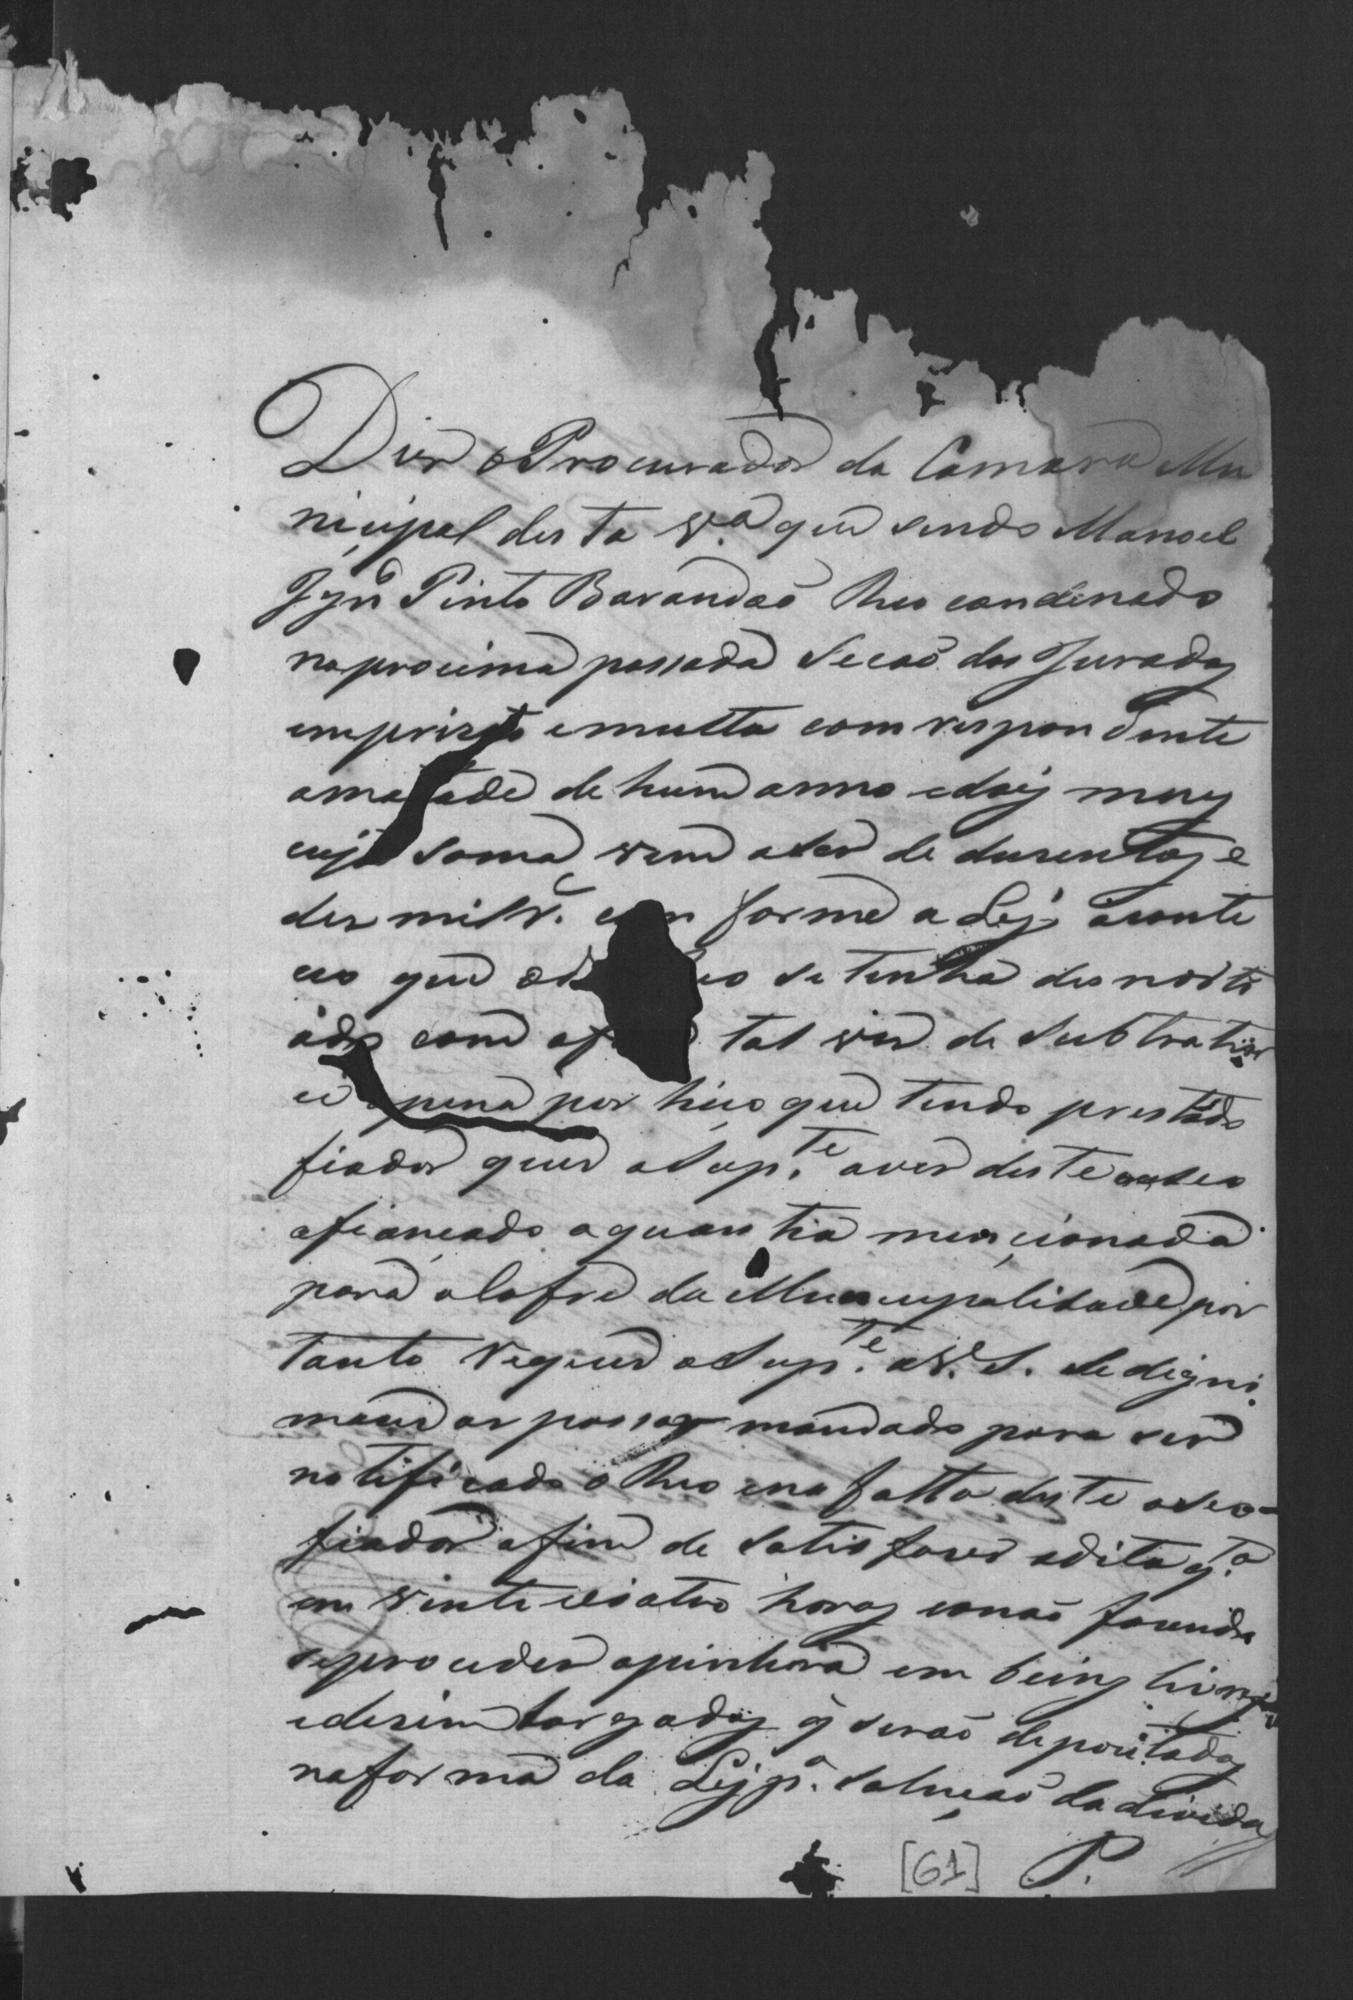 Diz o Procurador da Camara Mu
nicipal desta V.ª que sendo Manoel
Jgnº Pinto Barandaõ Reo condenado
na procima passada Secaõ dos Jurados
em prizaõ e multa com respondente
a matade de hum anno e dois mezes
cuja soma vem a ser de duzentos e
dez mil r.s com forme a Lej aconte
ceo que o d Reo se tenha desnorte
ado com a f tal vez de Subtrahir
a pena por hiço que tendo prestado
fiador quer o Sup.te aver deste ou seo
afiançado a quantia mencionada
para o Cofre da Municipalidade por
tanto Requer o Sup.te a V. S. se digni
mandar passar mandado para ser
notificado o Reo e na falta deste o seo
fiador afim de satisfazer a dita q.ta
em vinte coatro horas e naõ fazendo
se proceder a pinhora em beins livres
e dezimbargados q̃ seraõ depozitados
na forma da Lej p.ª salvaçaõ da divida
P.
[61]